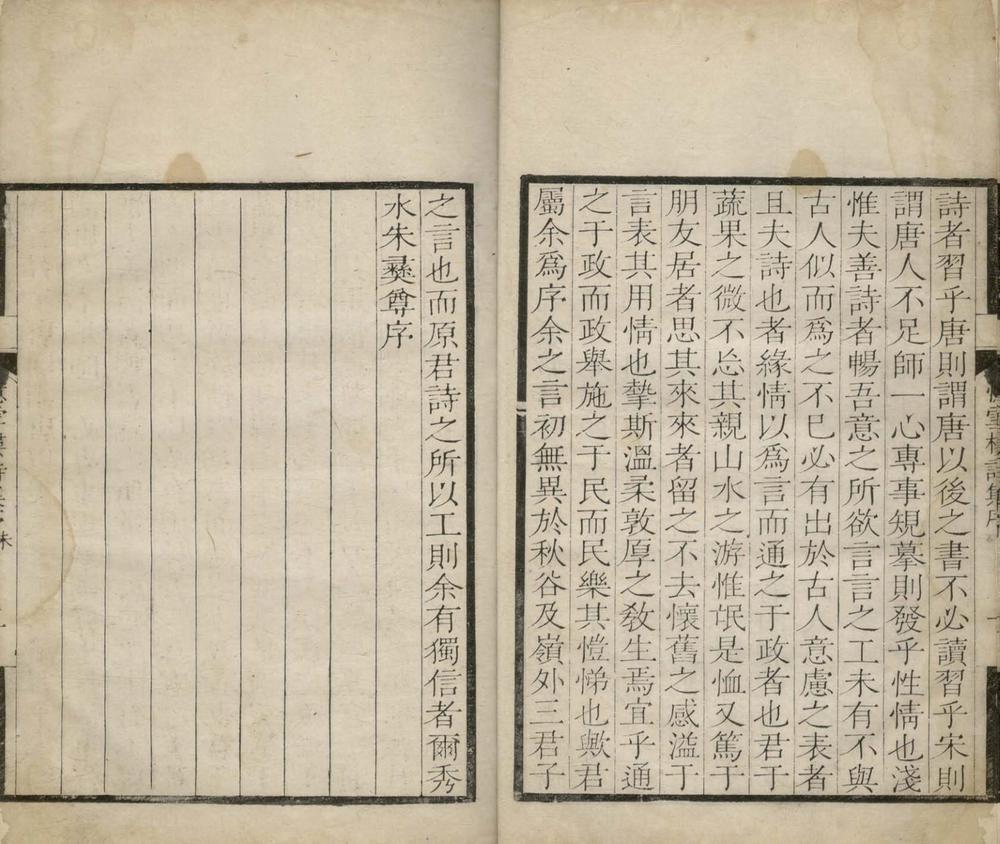 詩者習乎唐則謂唐以後之書不必讀習乎宋則
謂唐人不足師一心專事規摹則發乎性情也淺
惟夫善詩者暢吾意之所欲言言之工未有不與
古人似而爲之不已必有出於古人意慮之表者
且夫詩也者緣情以爲言而通之于政者也君于
蔬果之微不忘其親山水之游惟氓是恤又篤于
朋友居者思其來來者留之不去懷舊之感溢于
言表其用情也摯斯溫柔敦厚之教生焉宜乎通
之于政而政舉施之于民而民樂其愷悌也歟君
屬余爲序余之言初無異於秋谷及嶺外三君子
之言也而原君詩之所以工則余有獨信者爾秀
水朱彝尊序